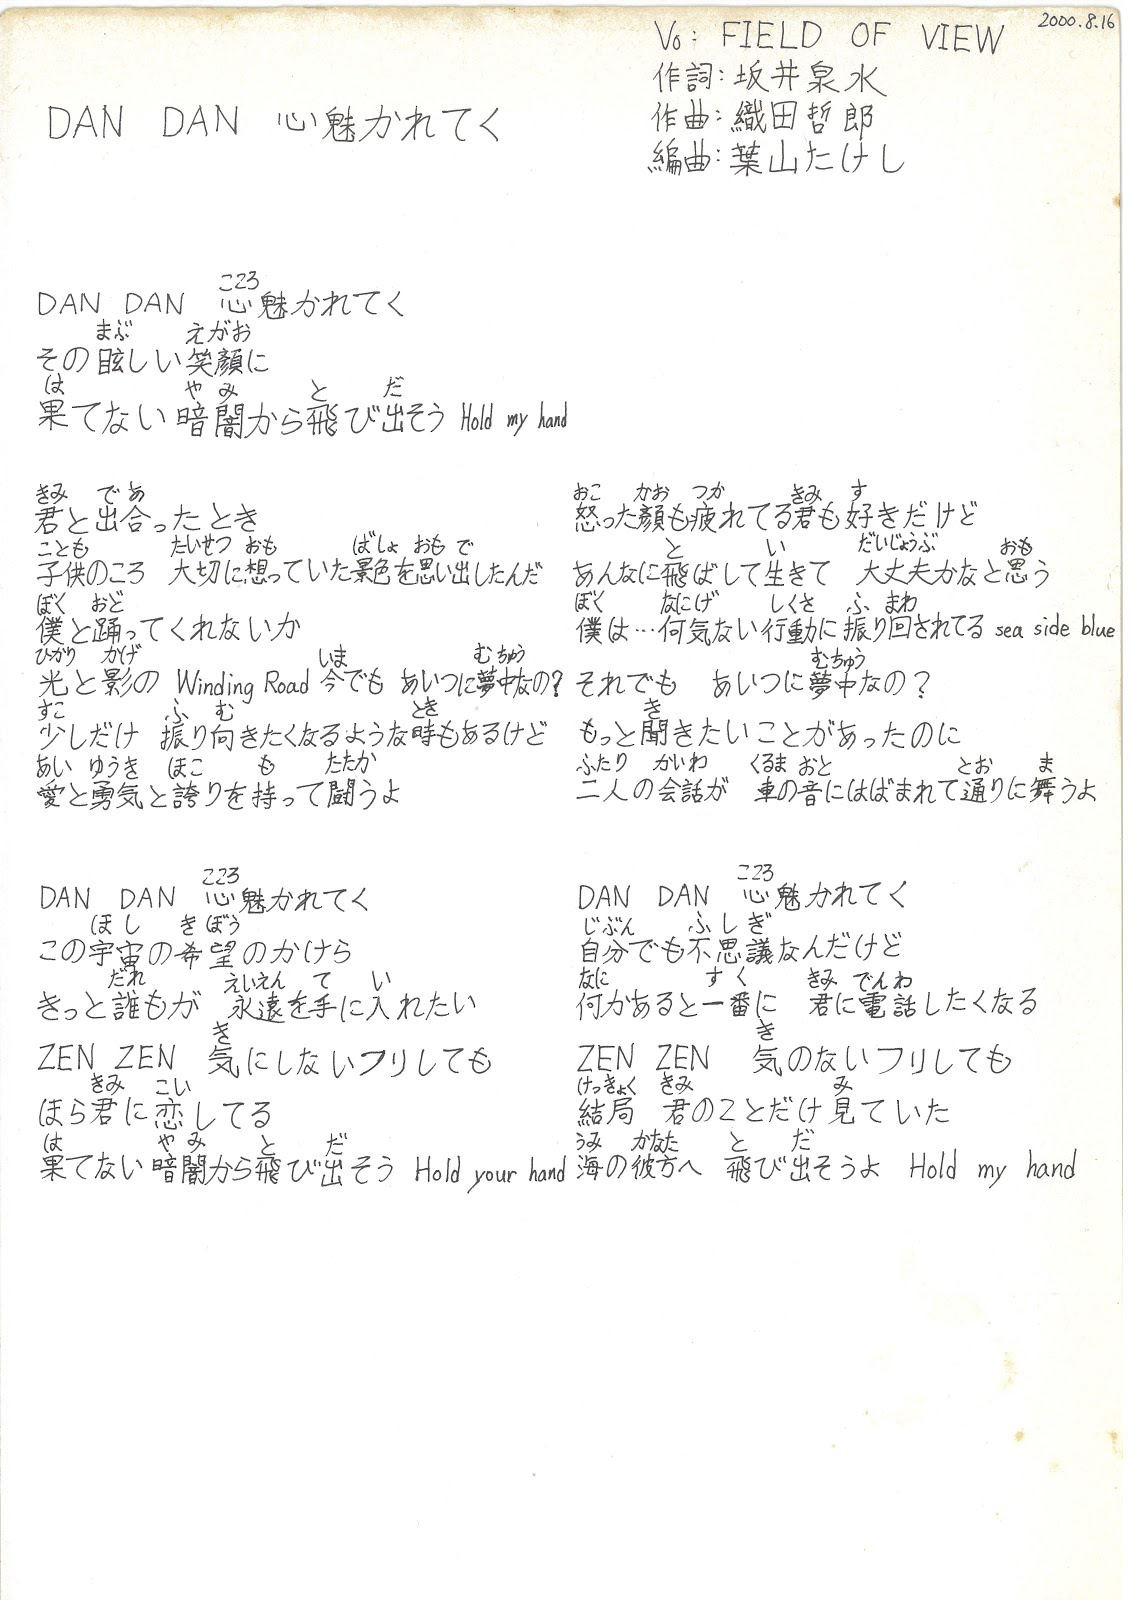 2000.8.16
Vo: FIELD OF VIEW
作詞:坂井泉水
作曲:織田哲郎
編曲:葉山たけし
DAN DAN 心魅かれてく
こころ
DAN DAN 心魅かれてく
まぶ えがお
その眩しい笑顔に
は やみ と だ
果てない暗闇から飛び出そう Hold my hand
きみ で あ
君と出合ったとき
こども たいせつ おも ばしょ おも で
子供のころ 大切に想っていた景色を思い出したんだ
ぼく おど
僕と踊ってくれないか
ひかり かげ いま むちゅう
光と影の Winding Road 今でも あいつに夢中なの?
すこ ふ む とき
少しだけ 振り向きたくなるような時もあるけど
あい ゆうき ほこ も たたか
愛と勇気と誇りを持って闘うよ
こころ
DAN DAN 心魅かれてく
ほし きぼう
この宇宙の希望のかけら
だれ えいえん て い
きっと誰もが 永遠を手に入れたい
き
ZEN ZEN 気にしないフリしても
きみ こい
ほら君に恋してる
は やみ と だ
果てない暗闇から飛び出そう Hold your hand
おこ かお つか きみ す
怒った顔も疲れてる君も好きだけど
と い だいじょうぶ おも
あんなに飛ばして生きて 大丈夫かなと思う
ぼく なにげ しくさ ふ まわ
僕は…何気ない行動に振り回されてる sea side blue
むちゅう
それでも あいつに夢中なの?
き
もっと聞きたいことがあったのに
ふたり かいわ くるま おと とお ま
二人の会話が 車の音にはばまれて通りに舞うよ
こころ
DAN DAN 心魅かれてく
じぶん ふしぎ
自分でも不思議なんだけど
なに すく きみ でんわ
何かあると一番に 君に電話したくなる
き
ZEN ZEN 気のないフリしても
けっきょく きみ み
結局 君のことだけ見ていた
うみ かなた と だ
海の彼方へ 飛び出そうよ Hold my hand